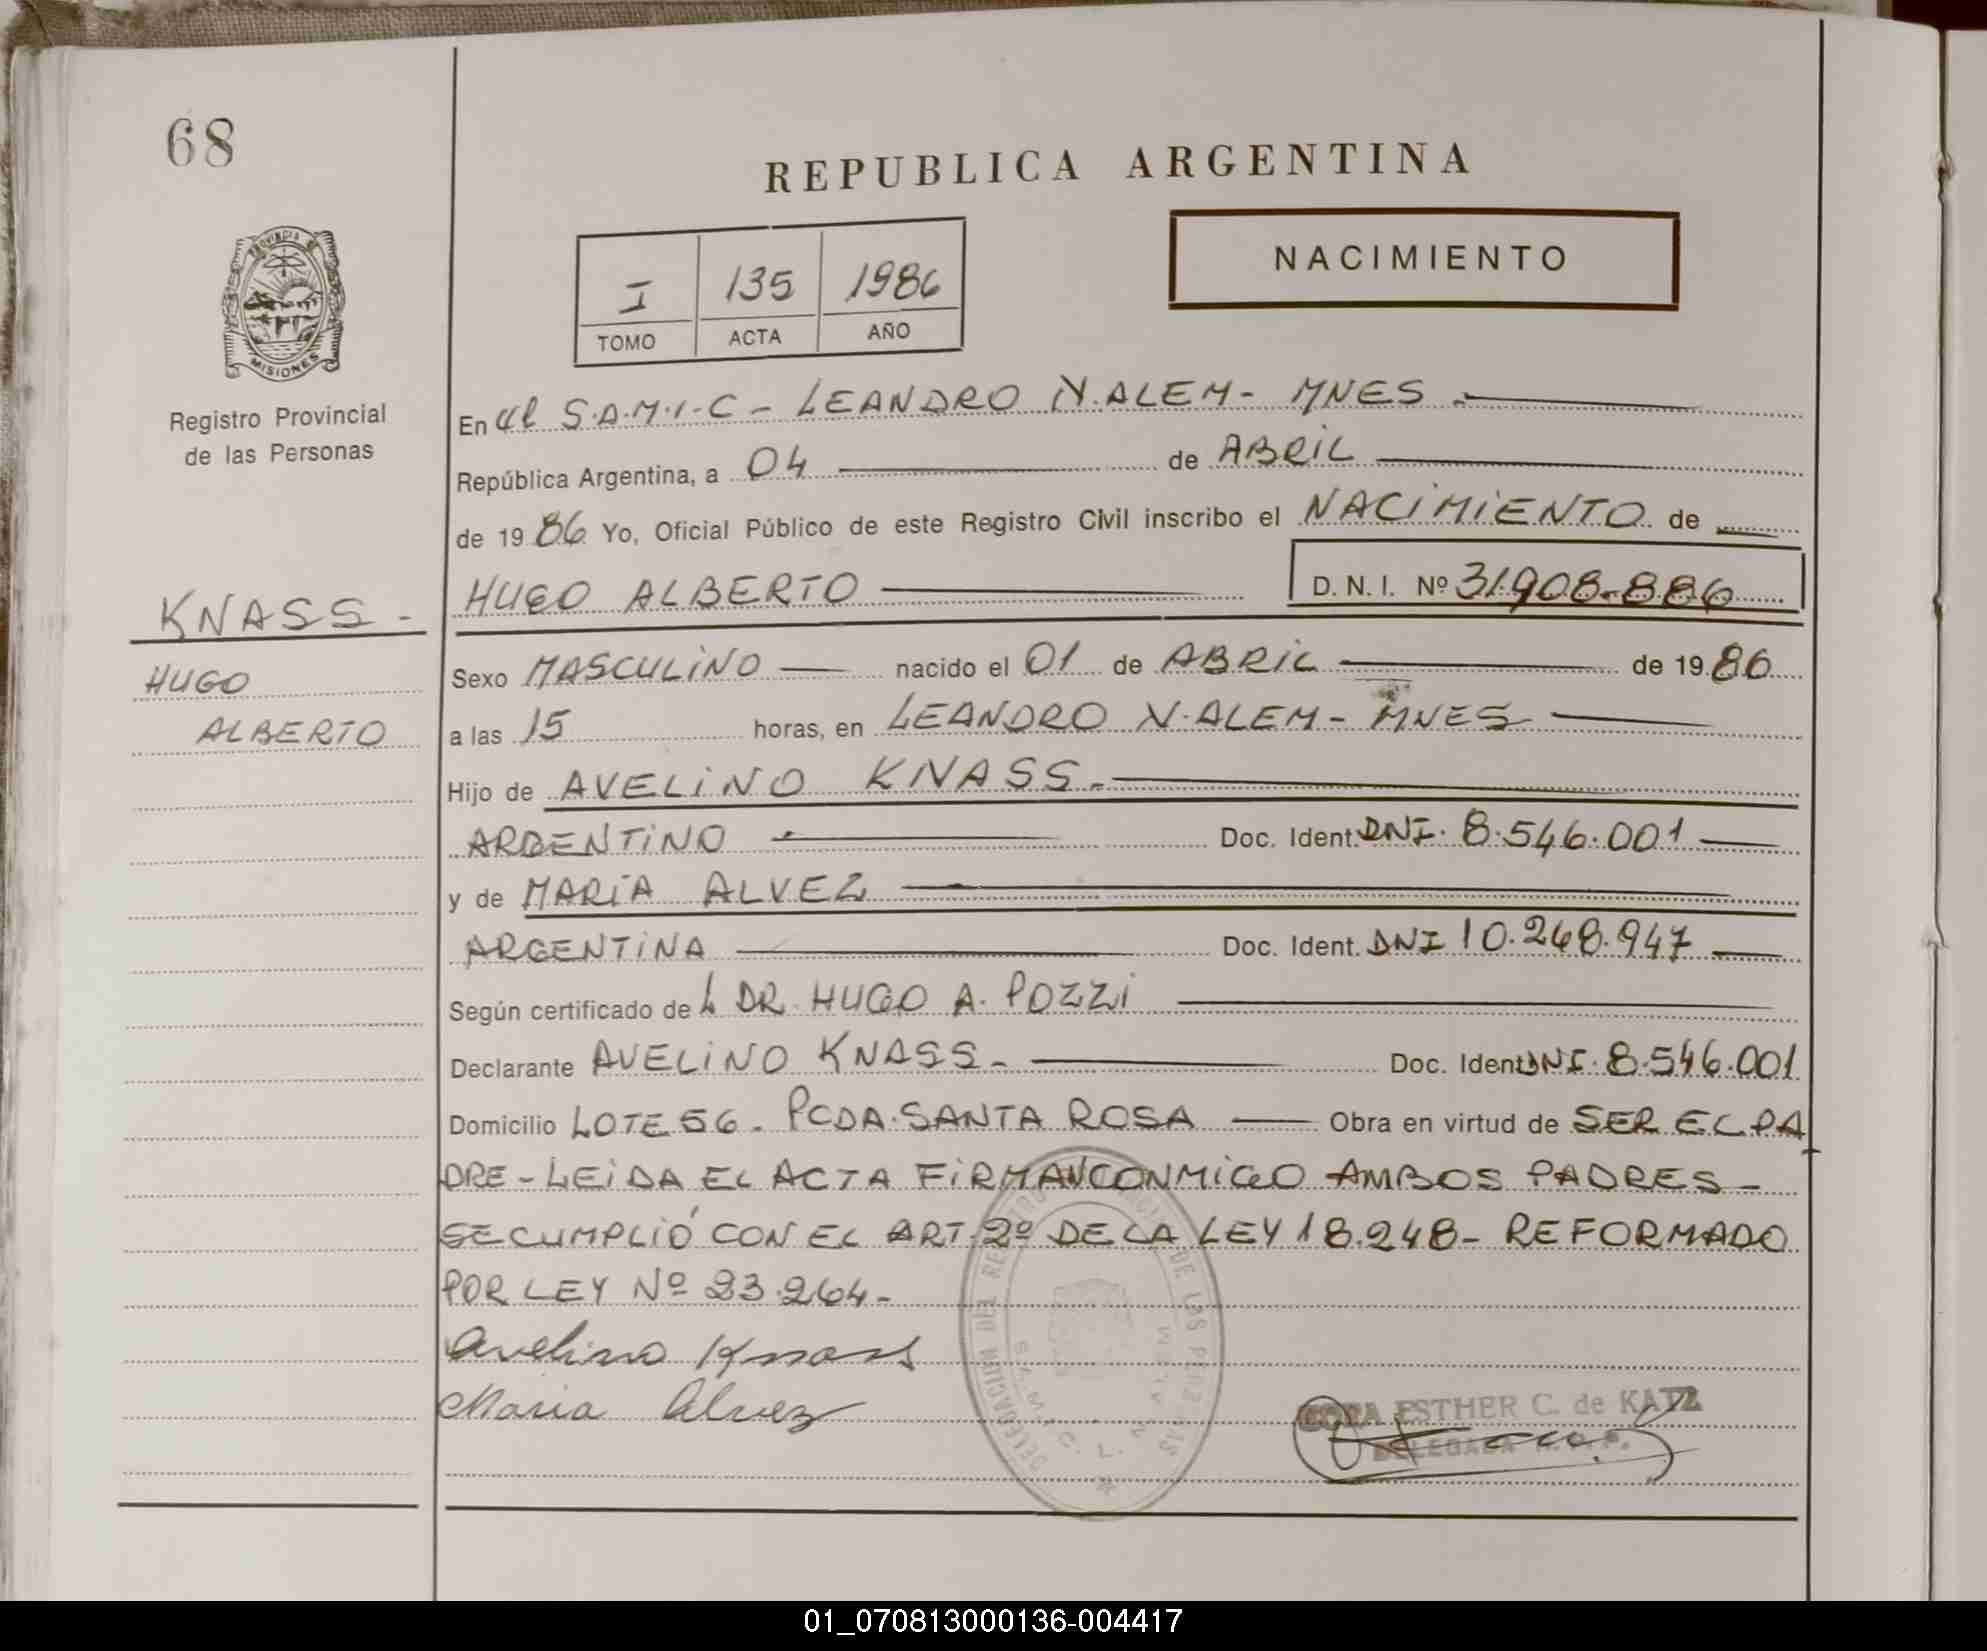 68
REPUBLICA ARGENTINA
NACIMIENTO
I 135 1986
TOMO ACTA AÑO
PROVINCIA DE
MISIONES
Registro Provincial
de las Personas
En el S.A.M.I.C - LEANDRO N. ALEM - MNES.
República Argentina, a 04 de ABRIL
de 1986 Yo, Oficial Público de este Registro Civil inscribo el NACIMIENTO de
HUGO ALBERTO D. N. I. Nº 31.908.886
KNASS -
HUGO
ALBERTO
Sexo MASCULINO nacido el 01 de ABRIL de 1986
a las 15 horas, en LEANDRO N. ALEM - MNES
Hijo de AVELINO KNASS.
ARGENTINO Doc. Ident. DNI. 8.546.001
y de MARÍA ALVEZ
ARGENTINA Doc. Ident. DNI 10.268.947
Según certificado de L DR. HUGO A. POZZI
Declarante AVELINO KNASS. Doc. Ident DNI. 8.546.001
Domicilio LOTE 56. PCDA. SANTA ROSA Obra en virtud de SER EL PA
DRE - LEIDA EL ACTA FIRMAN CONMIGO AMBOS PADRES -
SE CUMPLIÓ CON EL ART. 2º DE LA LEY 18.248 - REFORMADO
POR LEY Nº 23.264 -
Avelino Knass
Maria Alvez
DELEGACION DEL REGISTRO DE LAS PERSONAS
S.A.M.I.C. L. N. ALEM
ESTHER C. de KATZ
DELEGADA
01_070813000136-004417